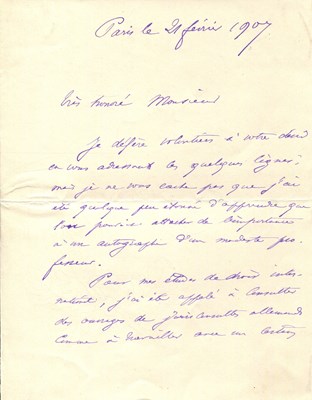 Paris le 21 février 1907
Très honoré Monsieur
Je défère volontiers à votre désir
en vous adressant les quelques lignes;
mais je ne vous cache pas que j'ai
été quelque peu étonné d'apprendre que
l'on pouvait attacher de l'importance
à un autographe d'un modeste pro-
fesseur.
Pour mes études de droit inter-
national, j'ai été appelé à consulter
des ouvrages de jurisconsultes allemands
comme à travailler avec un certain